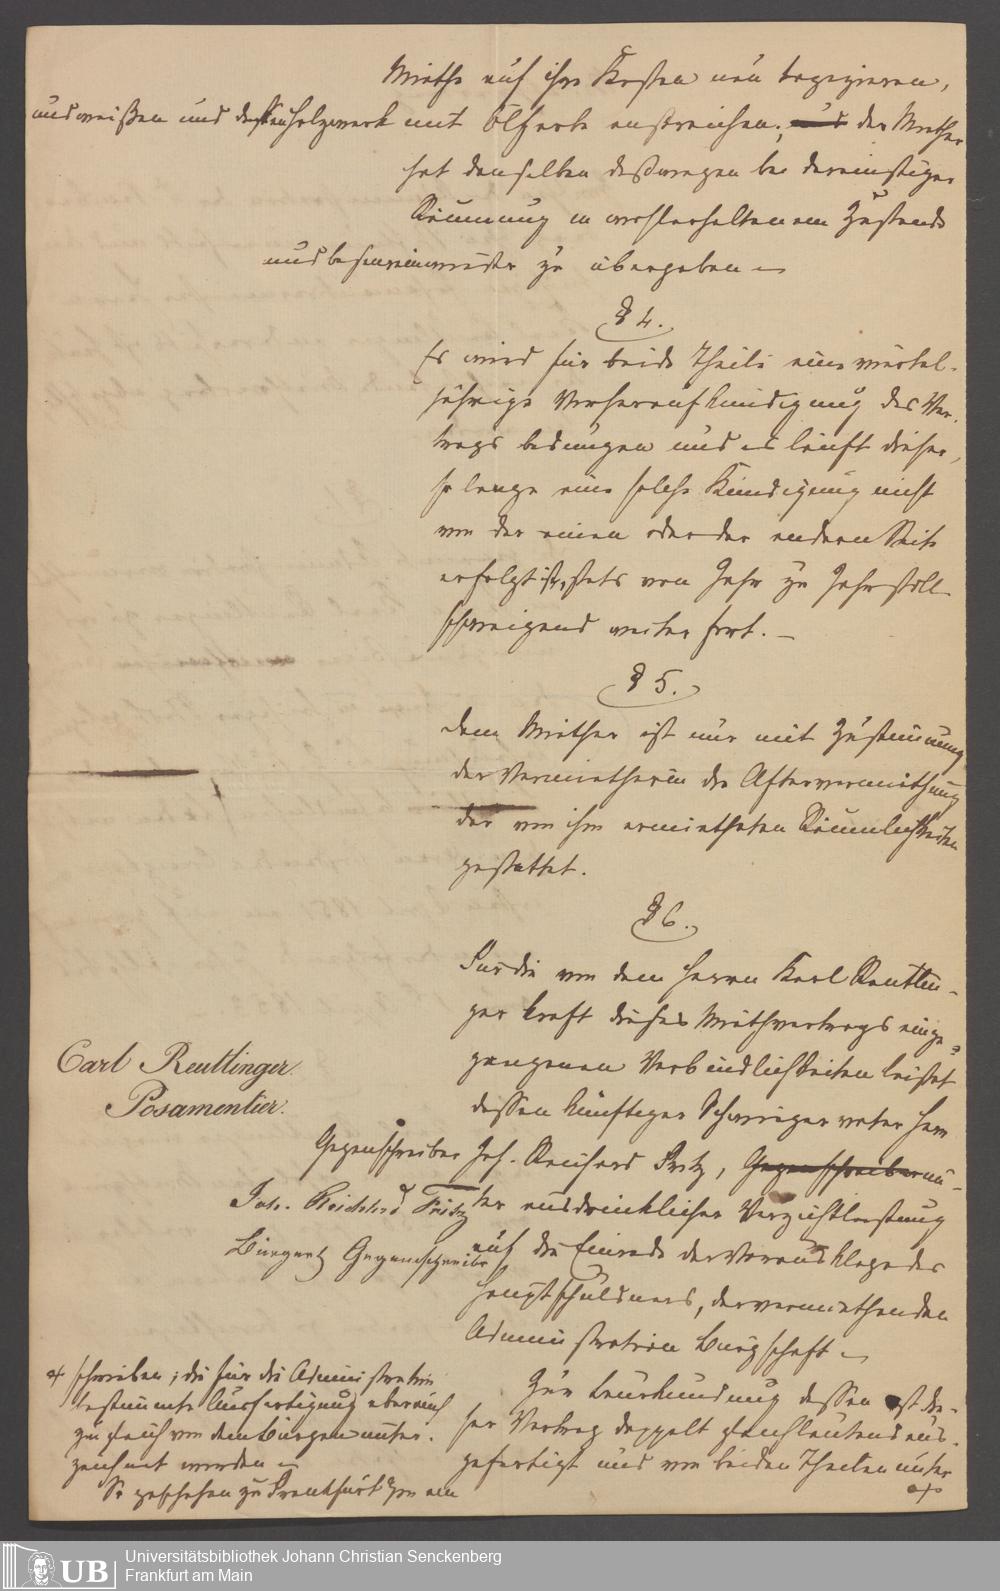 Miethe auf ihre Kosten neu tapezieren,
und weißen und das Holzwerk mit Ölfarbe anstreichen; und der Miether
hat denselben deßwegen bei dereinstiger
Räumung in wohlerhaltenem Zustande
und besenrein wieder zu übergeben –
§ 4.
Es wird für beide Theile eine viertel-
jährige Vorheraufkündigung des Ver-
trags bedungen und es läuft dieser,
so lange eine solche Kündigung nicht
von der einen oder der andern Seite
erfolgt ist, stets von Jahr zu Jahr still-
schweigend weiter fort. –
§ 5.
Dem Miether ist nur mit Zustimmung
der Vermietherin die Aftervermiethung
der von ihm ermietheten Räumlichkeiten
gestattet.
§ 6.
Für die von dem Herrn Karl Reutlin-
ger kraft dieses Miethvertrags einge-
gangenen Verbindlichkeiten leistet
dessen künftiger Schwiegervater Herr
Gegenschreiber Joh. Reichard Fritz, Gegenschreiber un-
ter ausdrücklicher Verzichtleistung
auf die Einrede der Vorausklage des
Hauptschuldners, der vermiethenden
Administration Bürgschaft –
Zur Beurkundung dessen ist die-
ser Vertrag doppelt gleichlautend aus-
gefertigt und von beiden Theilen unter
Carl Reutlinger.
Posamentier.
Joh. Reichhard Fritz
Bürger & Gegenschreiber
schrieben; die für die Administration
bestimmte Ausfertigung aber auch
zugleich von dem Bürgen unter-
zeichnet worden –
So geschehen zu Frankfurt am
UB
Universitätsbibliothek Johann Christian Senckenberg
Frankfurt am Main